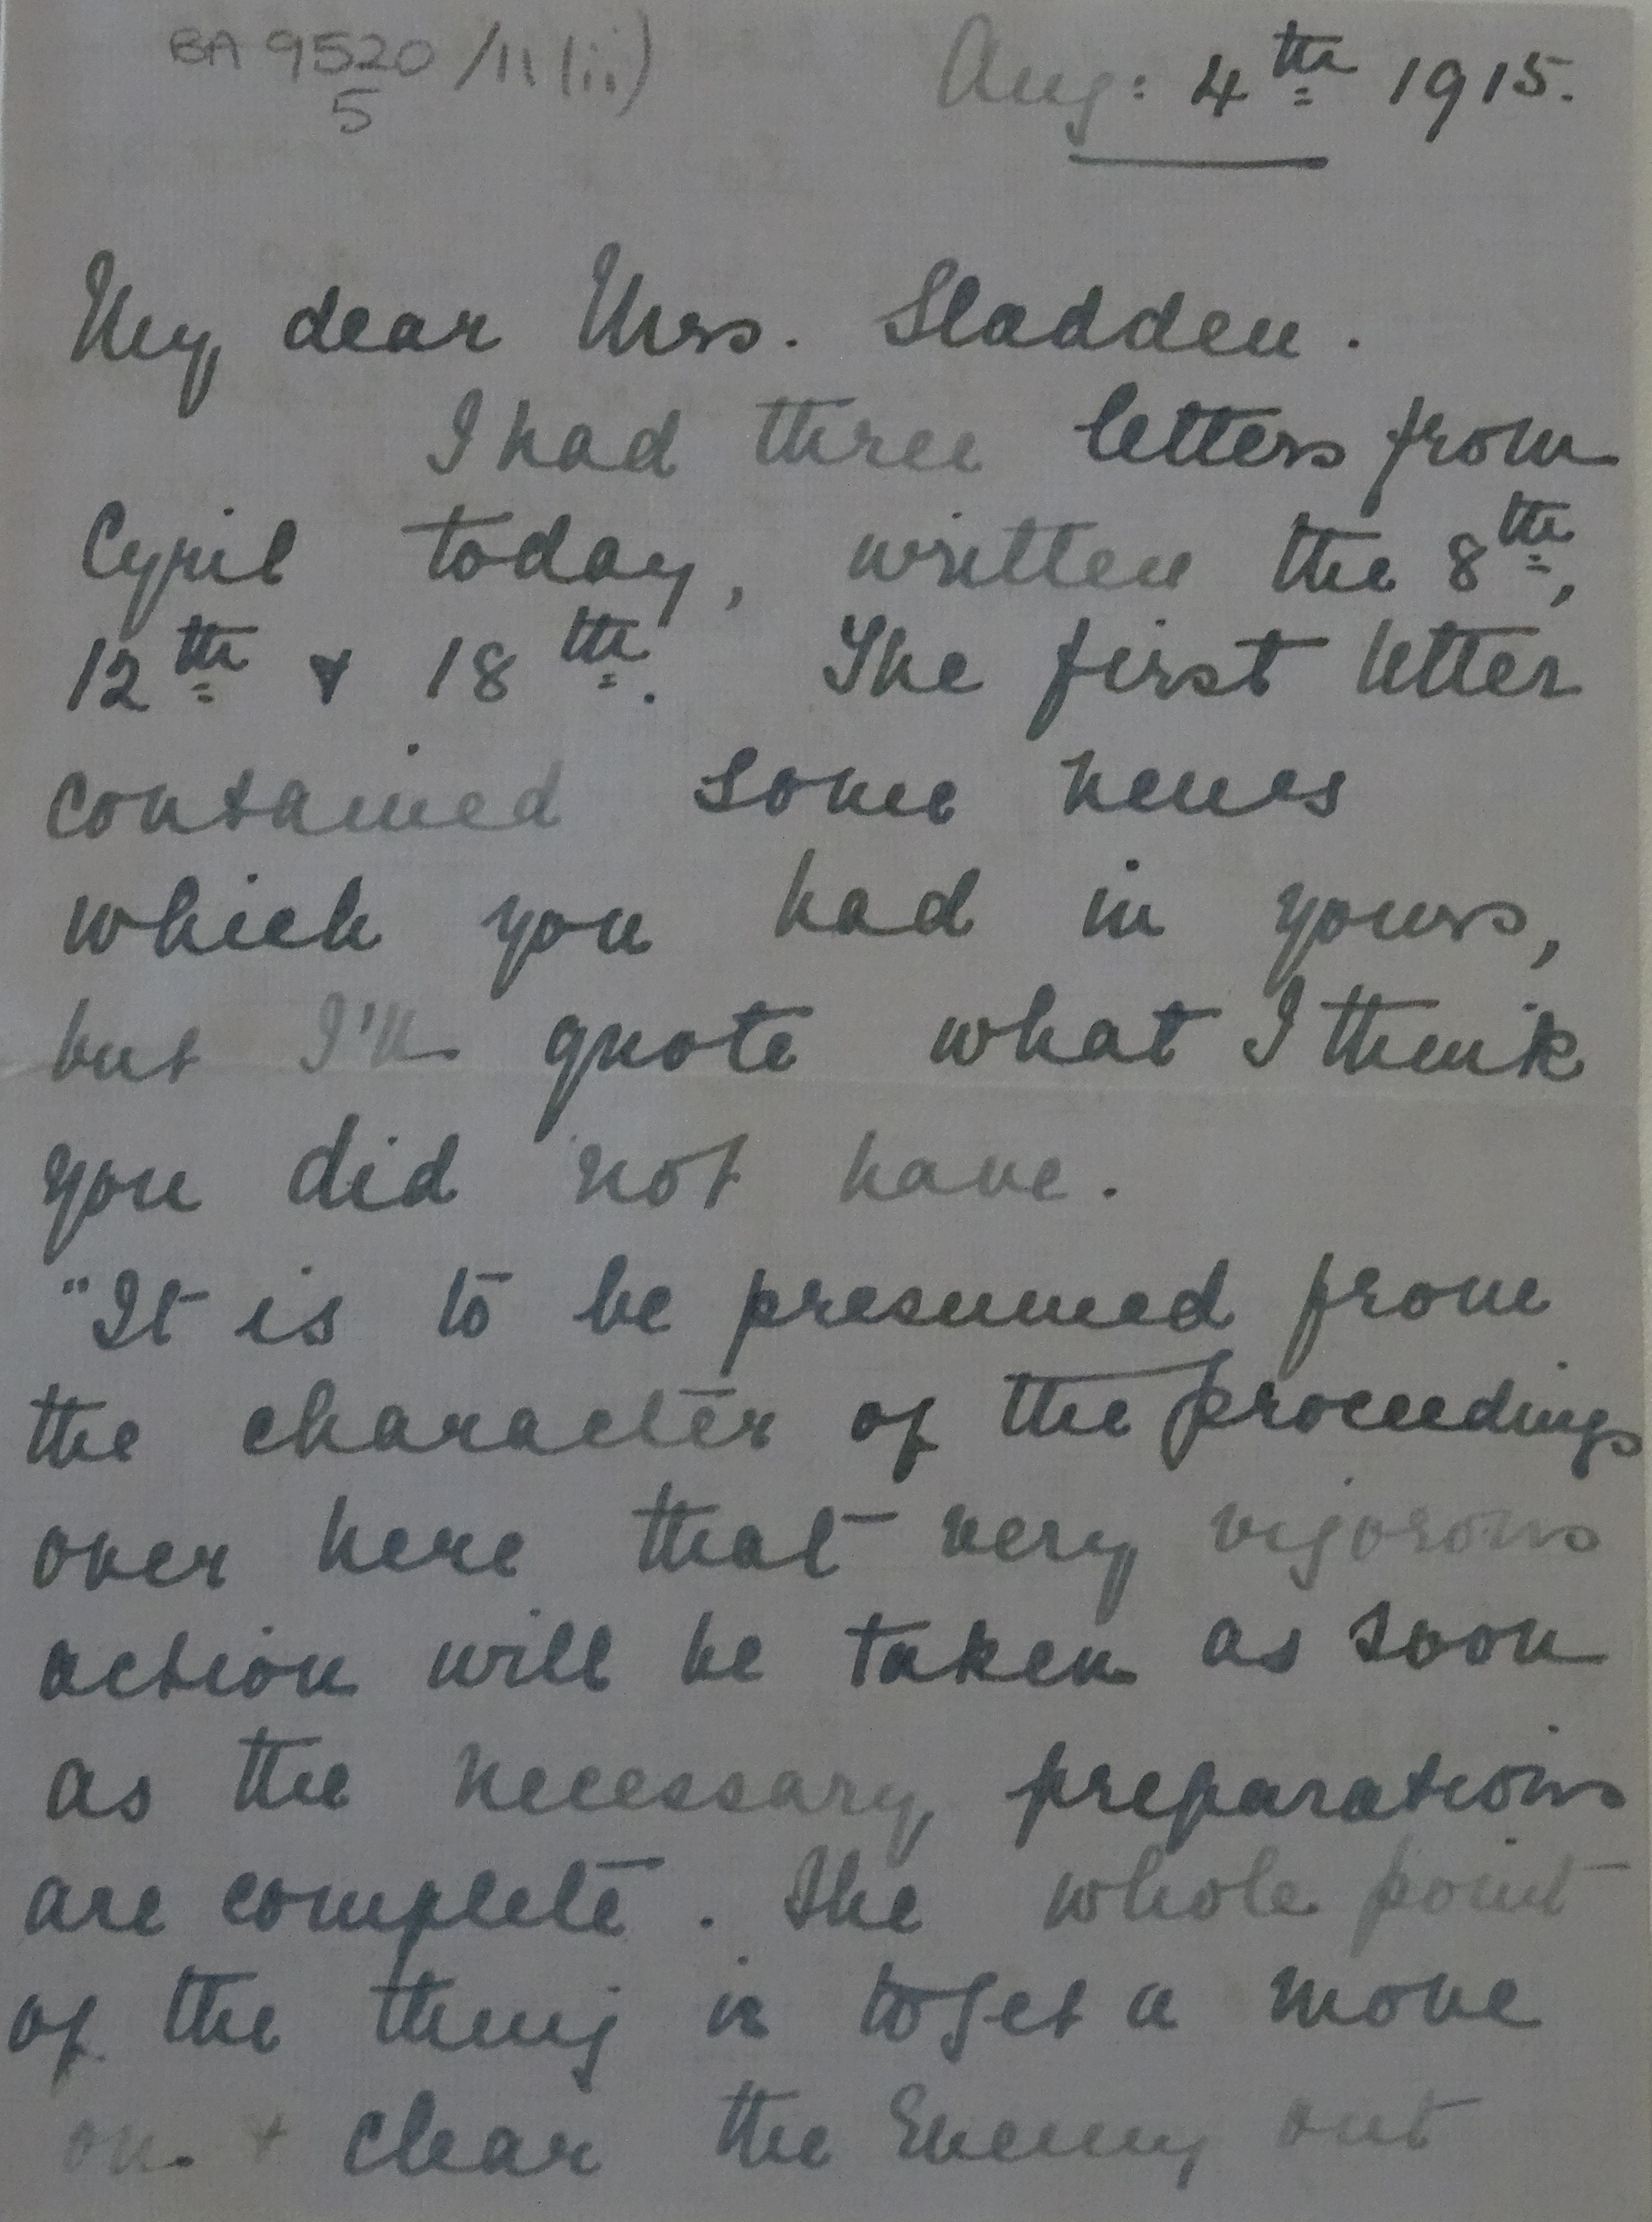 BA 9520/11(ii)
5
Aug: 4th 1915.
My dear Mrs. Sladden.
I had three letters from
Cyril today, written the 8th,
12th & 18th. The first letter
contained some news
which you had in yours,
but I'll quote what I think
you did not have.
"It is to be presumed from
the character of the proceedings
over here that very vigorous
action will be taken as soon
as the necessary preparations
are complete. The whole point
of the thing is to get a move
on & clear the Enemy out